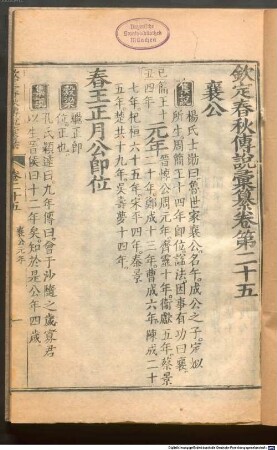 Bayerische
Staatsbibliothek
München
欽定春秋傳說彙纂卷第二十五
襄公
集說
楊氏士勛曰魯世家襄公名午成公之子定姒
所生周簡王十四年即位謚法因事有功曰襄
己簡王十
丑四年
元年
晉悼公周元年齊靈十年衞獻五年蔡景
二十年鄭成十三年曹成六年陳成二十
七年杞桓六十五年宋平四年秦景
五年楚共十九年吳壽夢十四年
春王正月公即位
穀梁
繼正即
位正也
集說
孔氏穎達曰九年傳曰會于沙隨之歲寡君
以生晉侯曰十二年矣知於是公年四歲
卷二十五
襄公元年